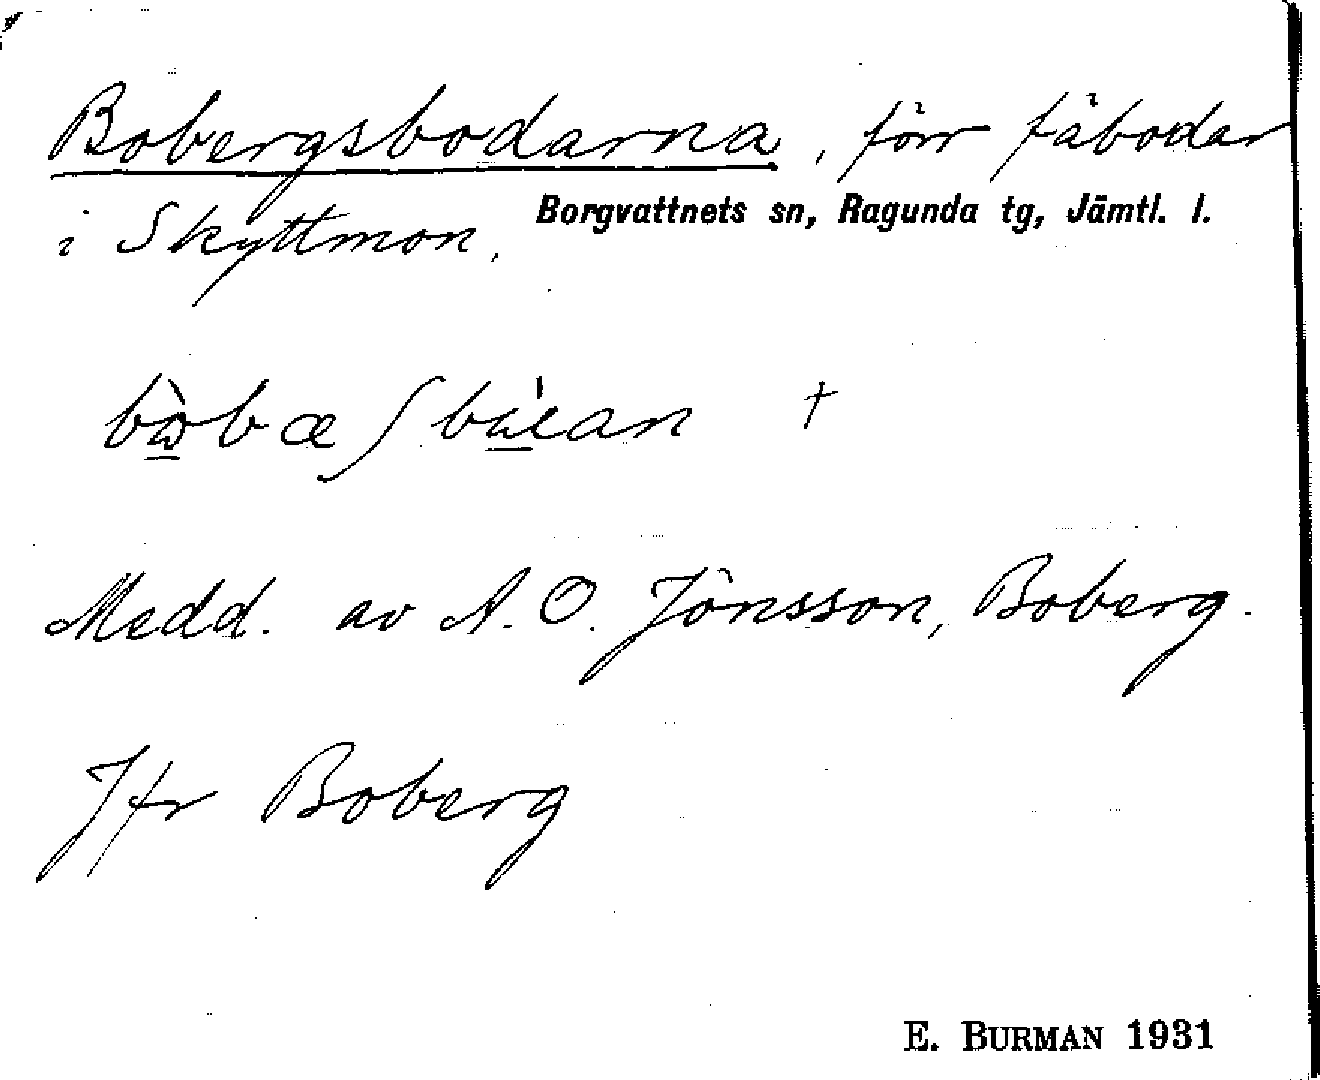 Bobergsbodarna, förr fäbodar
Borgvattnets sn, Ragunda tg, Jämtl. l.
i Skyttmon.
†
Medd. av N. O. Jönsson, Boberg.
Jfr Boberg
E. BURMAN 1931